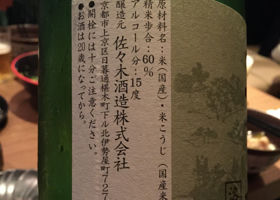 原材料名：米（国産）・米こうじ（国産米
精米歩合：60％
アルコール分：15度
醸造元 佐々木酒造株式会社
京都市上京区日暮通椹木町下ル北伊勢屋町727
●開栓には十分ご注意ください。
●お酒は20歳になってから。